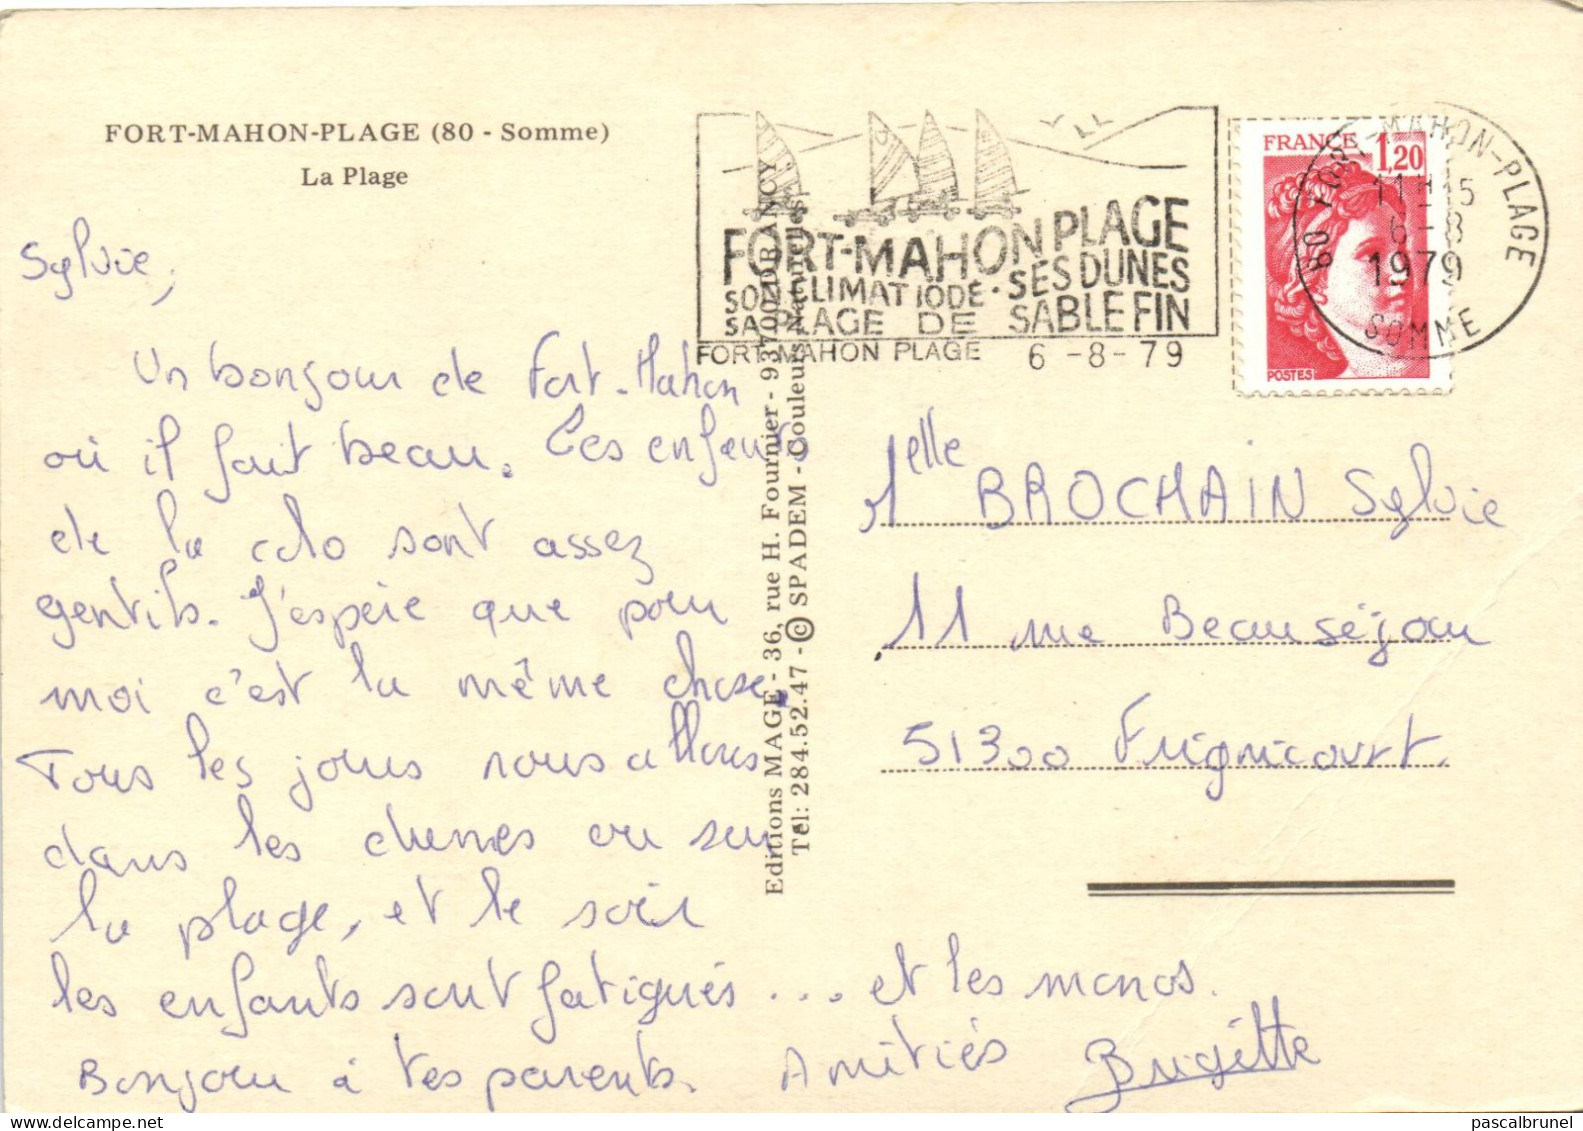 FORT-MAHON-PLAGE (80 - Somme)
La Plage
Sylvie,
Un bonjour de Fort-Mahon
où il fait beau. Les enfants
de la colo sont assez
gentils. J'espère que pour
moi c'est la même chose.
Tous les jours nous allons
dans les dunes ou sur
la plage, et le soir
les enfants sont fatigués ... et les monos.
Bonjour à tes parents. Amitiés Brigitte
Editions MAGE - 36, rue H. Fournier - 93700 DRANCY
Tél: 284.52.47 - © SPADEM - Couleurs Naturelles
FORT-MAHON PLAGE
SON CLIMAT IODÉ · SES DUNES
SA PLAGE DE SABLE FIN
FORT MAHON PLAGE 6 -8- 79
FRANCE 1,20
POSTES
80 FORT-MAHON-PLAGE
11H15
6-8
1979
SOMME
Melle BROCHAIN Sylvie
11 rue Beauséjour
51300 Frignicourt.
pascalbrunel